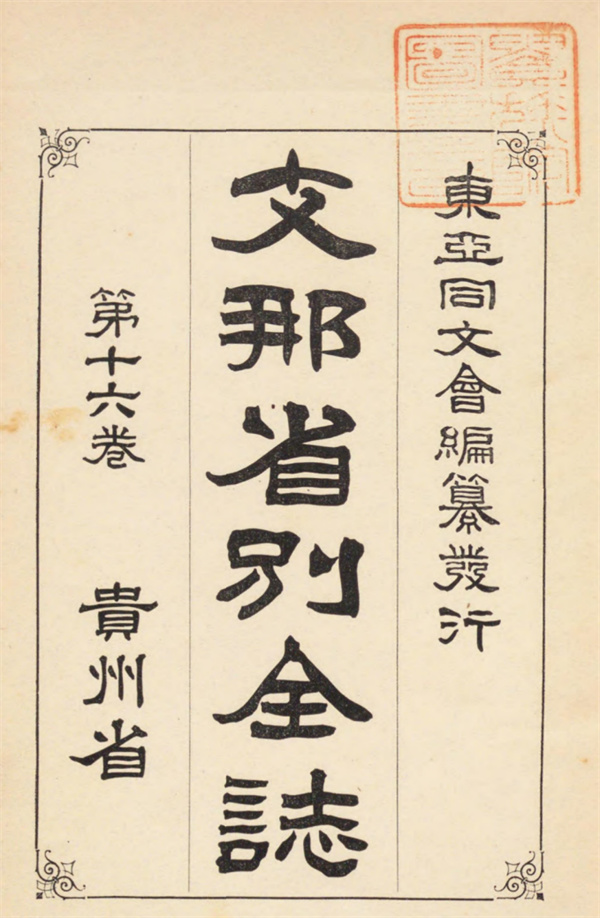 東亞同文會編纂發行
支那省別全誌
第十六卷 貴州省